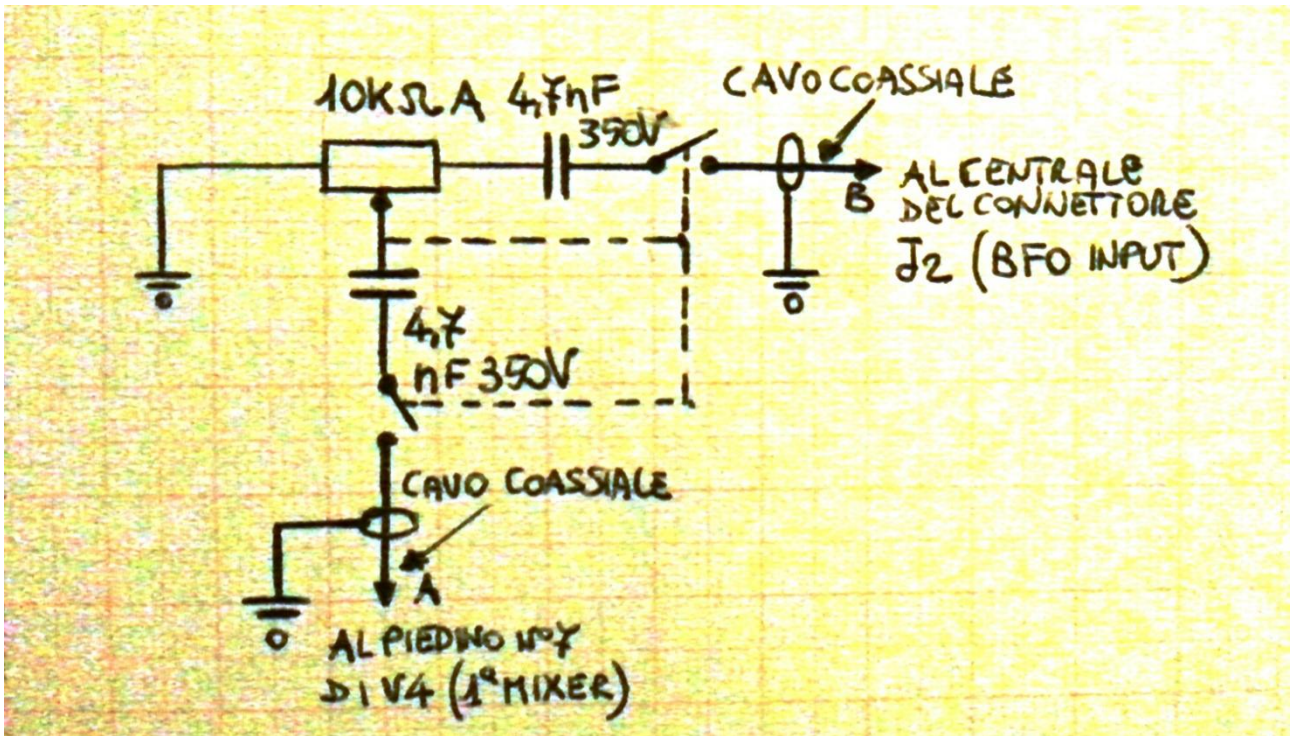 10KΩ A 4,7nF
350V
CAVO COASSIALE
B
AL CENTRALE
DEL CONNETTORE
J2 (BFO INPUT)
4,7
nF 350V
CAVO COASSIALE
A
AL PIEDINO N°7
DI V4 (1ª MIXER)